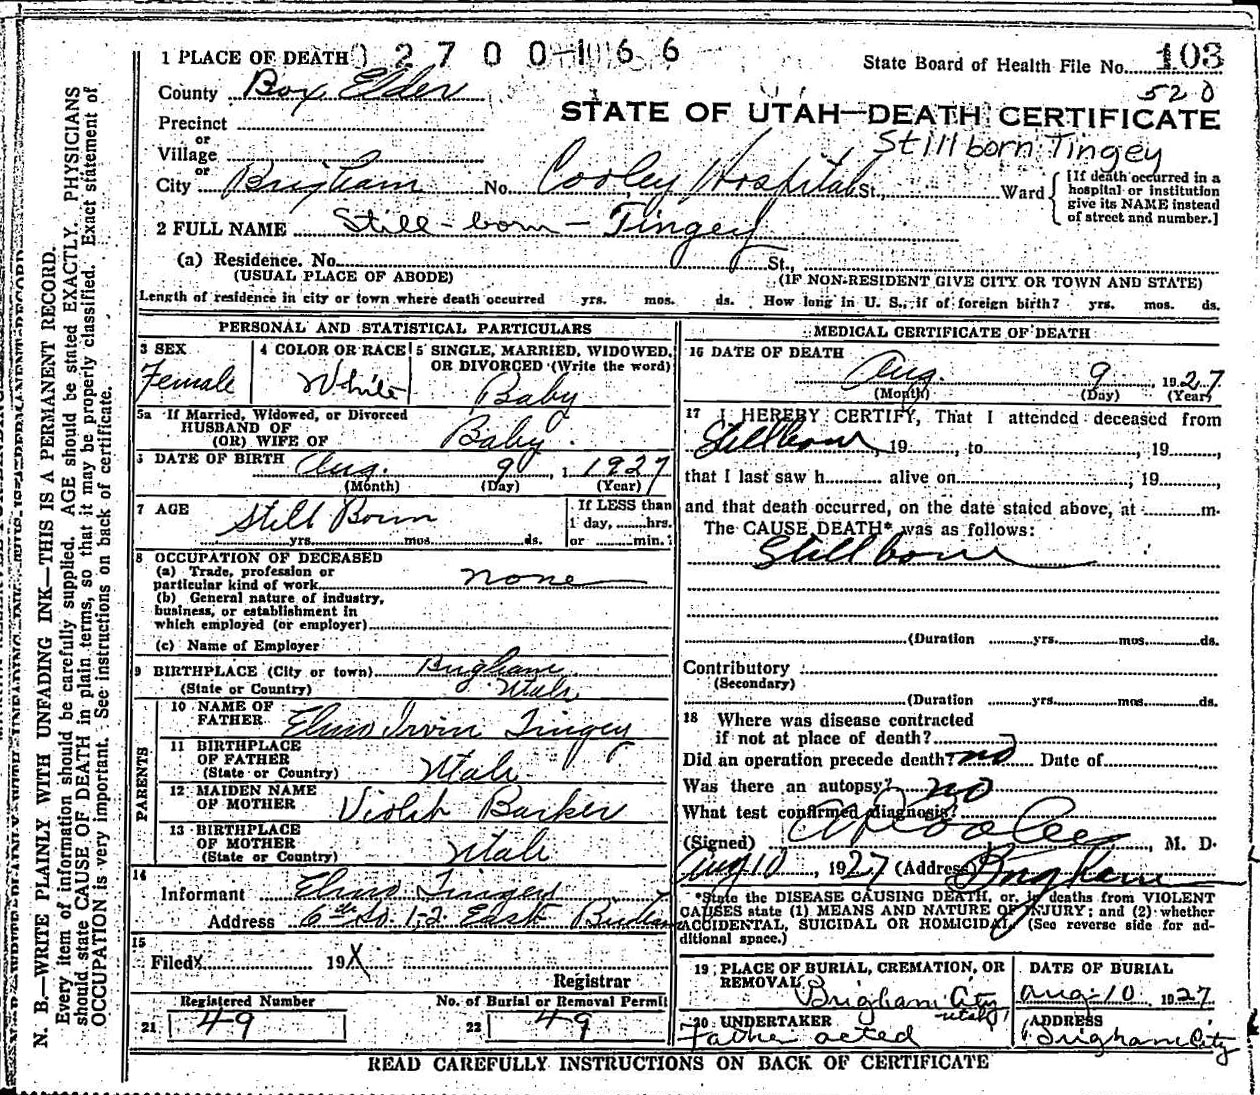 1 PLACE OF DEATH 0 2 7 0 0 1 6 6
State Board of Health File No. 103
520
County Box Elder
STATE OF UTAH—DEATH CERTIFICATE
Precinct
or
Village
Stillborn Tingey
or
City Brigham No. Cooley Hospital St., Ward
[If death occurred in a hospital or institution give its NAME instead of street and number.]
2 FULL NAME Still-born - Tingey
(a) Residence. No. St.,
(USUAL PLACE OF ABODE) (IF NON-RESIDENT GIVE CITY OR TOWN AND STATE)
Length of residence in city or town where death occurred yrs. mos. ds. How long in U. S., if of foreign birth? yrs. mos. ds.
PERSONAL AND STATISTICAL PARTICULARS
3 SEX
Female
4 COLOR OR RACE
White
5 SINGLE, MARRIED, WIDOWED,
OR DIVORCED (Write the word)
Baby
5a If Married, Widowed, or Divorced
HUSBAND OF
(OR) WIFE OF Baby
6 DATE OF BIRTH Aug. 9 1927
(Month) (Day) (Year)
7 AGE
Still Born
yrs. mos. ds.
If LESS than
1 day, hrs.
or min.
8 OCCUPATION OF DECEASED
(a) Trade, profession or
particular kind of work none
(b) General nature of industry,
business, or establishment in
which employed (or employer)
(c) Name of Employer
9 BIRTHPLACE (City or town) Brigham
(State or Country) Utah
PARENTS
10 NAME OF
FATHER Elmo Irvin Tingey
11 BIRTHPLACE
OF FATHER
(State or Country) Utah
12 MAIDEN NAME
OF MOTHER Violet Barker
13 BIRTHPLACE
OF MOTHER
(State or Country) Utah
14
Informant Elmo Tingey
Address 6th So. 1,2 East
15
Filed X 19X
Registrar
Registered Number
21 49
No. of Burial or Removal Permit
22 49
MEDICAL CERTIFICATE OF DEATH
16 DATE OF DEATH
Aug. 9, 1927
(Month) (Day) (Year)
17 I HEREBY CERTIFY, That I attended deceased from
Stillborn, 19, to, 19,
that I last saw h alive on, 19,
and that death occurred, on the date stated above, at m.
The CAUSE DEATH* was as follows:
Stillborn
(Duration yrs. mos. ds.
Contributory
(Secondary)
(Duration yrs. mos. ds.
18 Where was disease contracted
if not at place of death?
Did an operation precede death? no Date of
Was there an autopsy? no
What test confirmed diagnosis?
(Signed) Cooley, M. D.
Aug 10, 1927 (Address) Brigham
*State the DISEASE CAUSING DEATH, or, in deaths from VIOLENT
CAUSES state (1) MEANS AND NATURE OF INJURY; and (2) whether
ACCIDENTAL, SUICIDAL OR HOMICIDAL. (See reverse side for ad-
ditional space.)
19 PLACE OF BURIAL, CREMATION, OR
REMOVAL
Brigham City
Utah
DATE OF BURIAL
Aug 10 1927
20 UNDERTAKER
Father acted
ADDRESS
Brigham City
READ CAREFULLY INSTRUCTIONS ON BACK OF CERTIFICATE
N. B.—WRITE PLAINLY WITH UNFADING INK—THIS IS A PERMANENT RECORD.
Every item of information should be carefully supplied. AGE should be stated EXACTLY. PHYSICIANS
should state CAUSE OF DEATH in plain terms, so that it may be properly classified. Exact statement of
OCCUPATION is very important. See instructions on back of certificate.